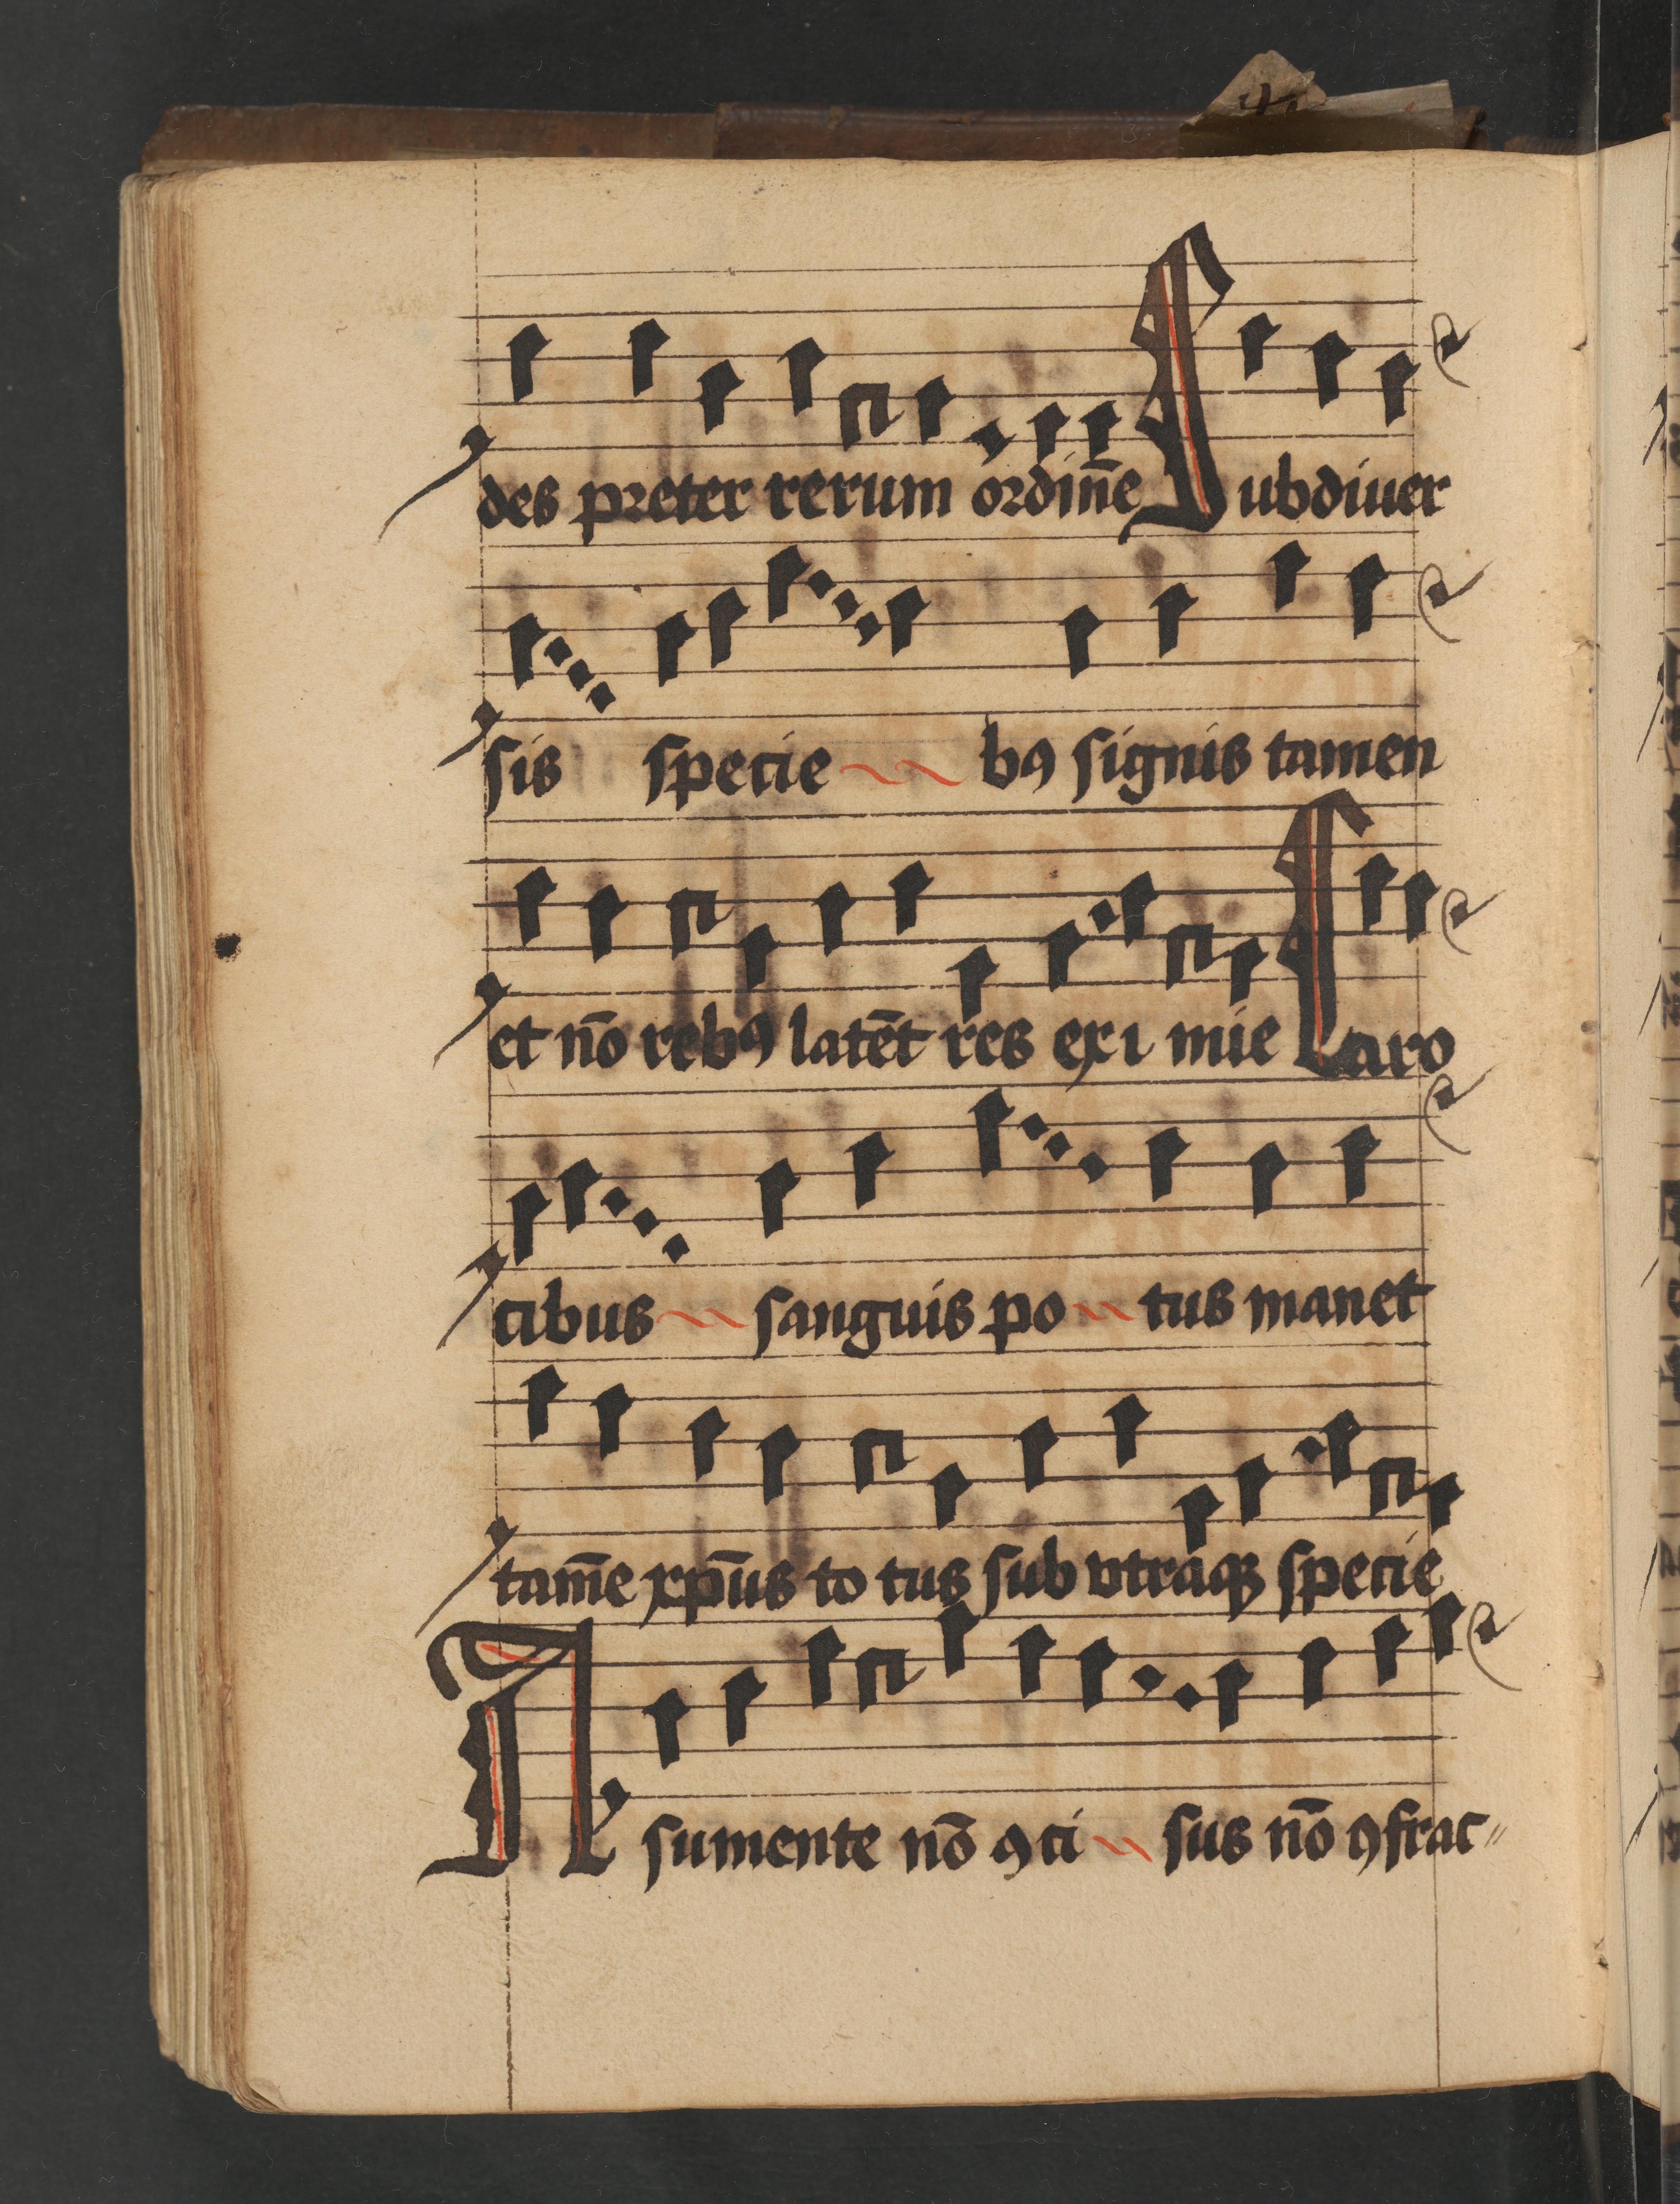 des preter rerum ordin̄e Subdiuer
sis specie bꝯ signis tamen
et nō rebꝯ latēt res exi mie Caro
cibus sanguis po tus manet
tam̄e xp̄us to tus sub vtraqꝫ specie
A sumente nō ꝯci sus nō ꝯfrac〃